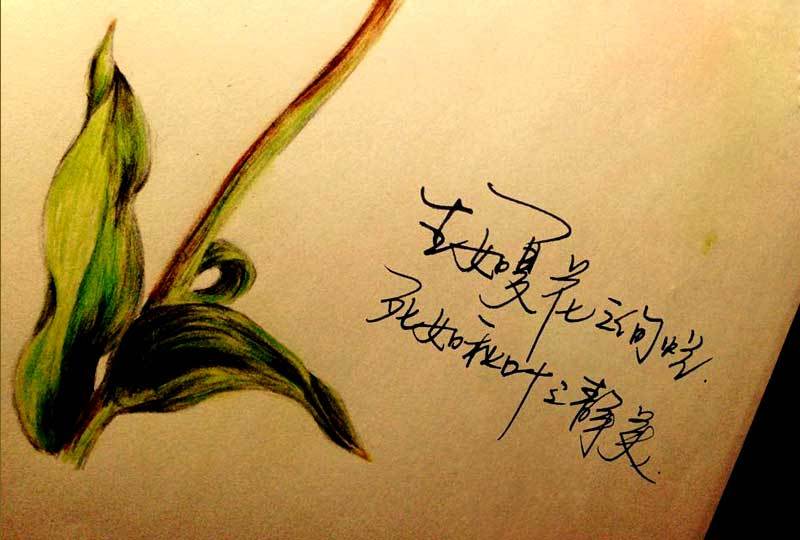 生如夏花之绚烂
死如秋叶之静美